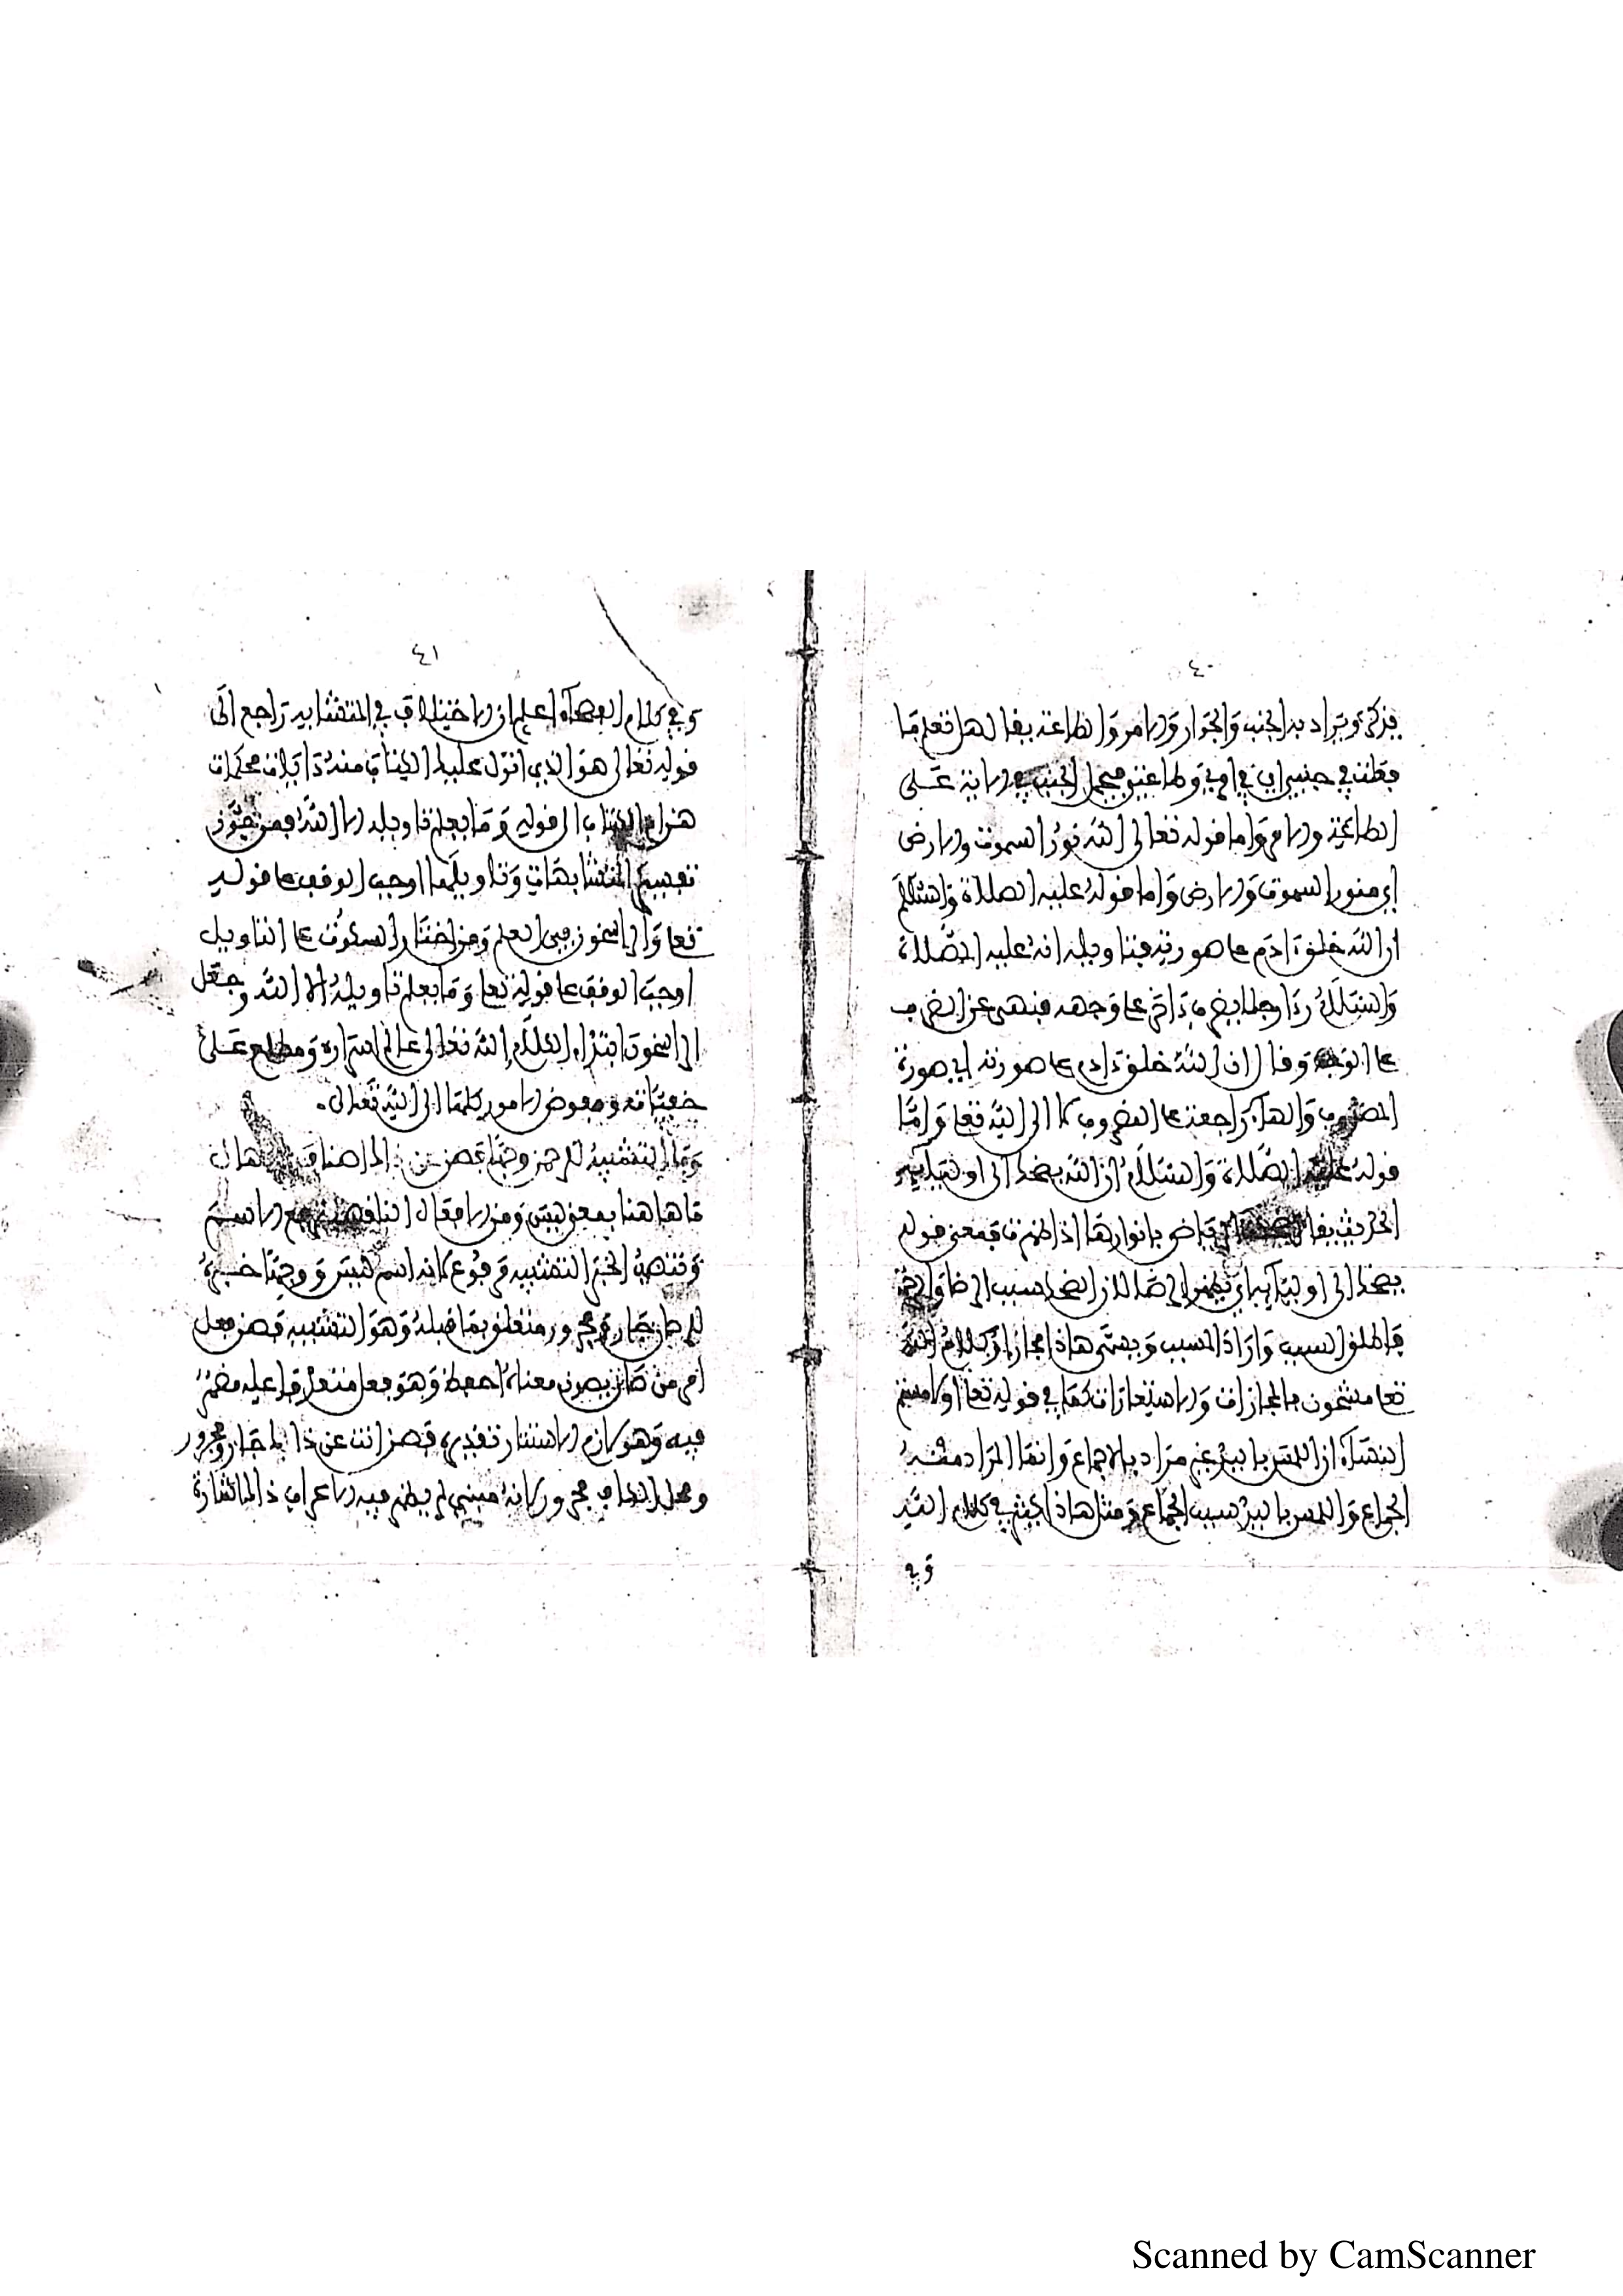 ٤٠
فيذكر ويراد به الجنب والجوار والامر والطاعة يقال لهل تعلم ما
فعلت في جنبي اي في امري وطاعتي فيحمل الجنب في الاية على
الطاعة والامر واما قوله تعالى الله نور السموت والارض
اي منور السموت والارض واما قوله عليه الصلاة والسلام
ان الله خلق ءادم على صورته فتاويله انه عليه الصلاة
والسلام رءا رجلا يضرب ءاخر على وجهه فنهى عن الضرب
على الوجه وقال ان الله خلق ءادم على صورته اي صورة
المضروب والهاء راجعة على المضروب لا الى الله تعا واما
قوله عليه الصلاة والسلام ان الله يضحك الى اوليايه
الحديث يقال الرياض بانوارها اذا ظهرت فمعنى قوله
يضحك الى اوليايه اي يظهر الرضا لان الضحك سبب الرضا
فاطلق السبب واراد المسبب ويسمى هاذا مجازا وكلام الله
تعا مشحون بالمجازات والاستعارات كما في قوله تعا اولامستم
النساء ان اللمس باليد غير مراد بالاجماع وانما المراد منه
الجماع واللمس باليد سبب الجماع ومثل هاذا كثير في كلام الله
وفي
٤١
وفي كلام الفصحاء اعلم ان الاختلاف في المتشابه راجع الى
قوله تعالى هو الذي انزل عليك الكتاب منه ءايات محكمات
هن ام الكتاب الى قوله وما يعلم تاويله الا الله فمن جوز
تفسير المتشابهات وتاويلها اوجب الوقف على قوله
تعا والراسخون في العلم ومن اختار السكوت على التاويل
اوجب الوقف على قوله تعا وما يعلم تاويله الا الله وجعل
الراسخون ابتداء الكلام الله تعالى عالم اسراره ومطلع على
خفياته ومفوض الامور كلها الى الله تعالى.
وما التشبيه للرحمن وجها فصن عن ذاك اصناف الاهال
ما هاهنا بمعنى ليس ومن الافعال الناقصة ترفع الاسم
وتنصب الخبر التشبيه مرفوع لانه اسم ليس ووجها خبره
للرحمن جار ومجرور متعلق بما قبله وهو التشبيه فصن فعل
امر من صان يصون معناه احفظ وهو فعل متعد فاعله مضمر
فيه وهو لازم الاستتار تقديره فصن انت عن ذاك جار ومجرور
ومحل الكاف مجرور لانه مبني لم يظهر فيه الاعراب ذا للاشارة
Scanned by CamScanner